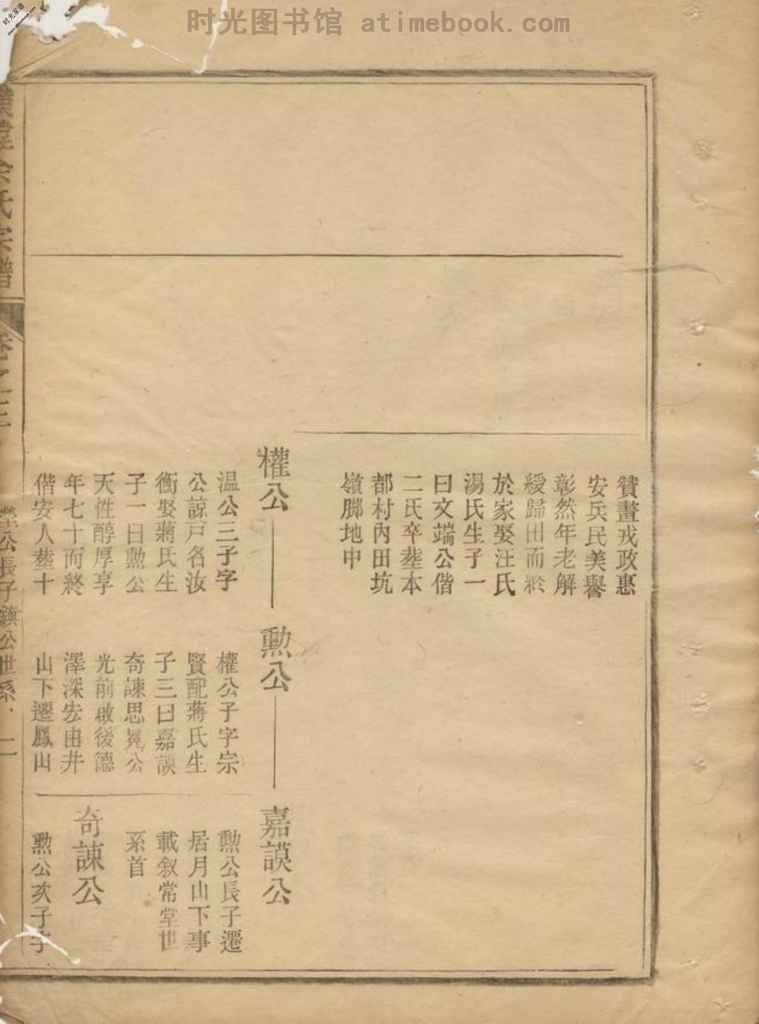 时光图书馆 atimebook.com
贊畫戎政惠
安兵民美譽
彰然年老解
綬歸田而終
於家娶汪氏
湯氏生子一
曰文端公偕
二氏卒塟本
都村內田坑
嶺脚地中
權公
温公三子字
公諒戸名汝
衡娶蔣氏生
子一曰勲公
天性醇厚享
年七十而終
偕安人塟十
勲公
權公子字宗
賢配蔣氏生
子三曰嘉謨
奇諫思冕公
光前啟後德
澤深宏由井
山下遷鳳山
嘉謨公
勲公長子遷
居月山下事
載叙常堂世
系首
奇諫公
勲公次子字
余氏宗譜
卷之三
公長子鎮公世系
二